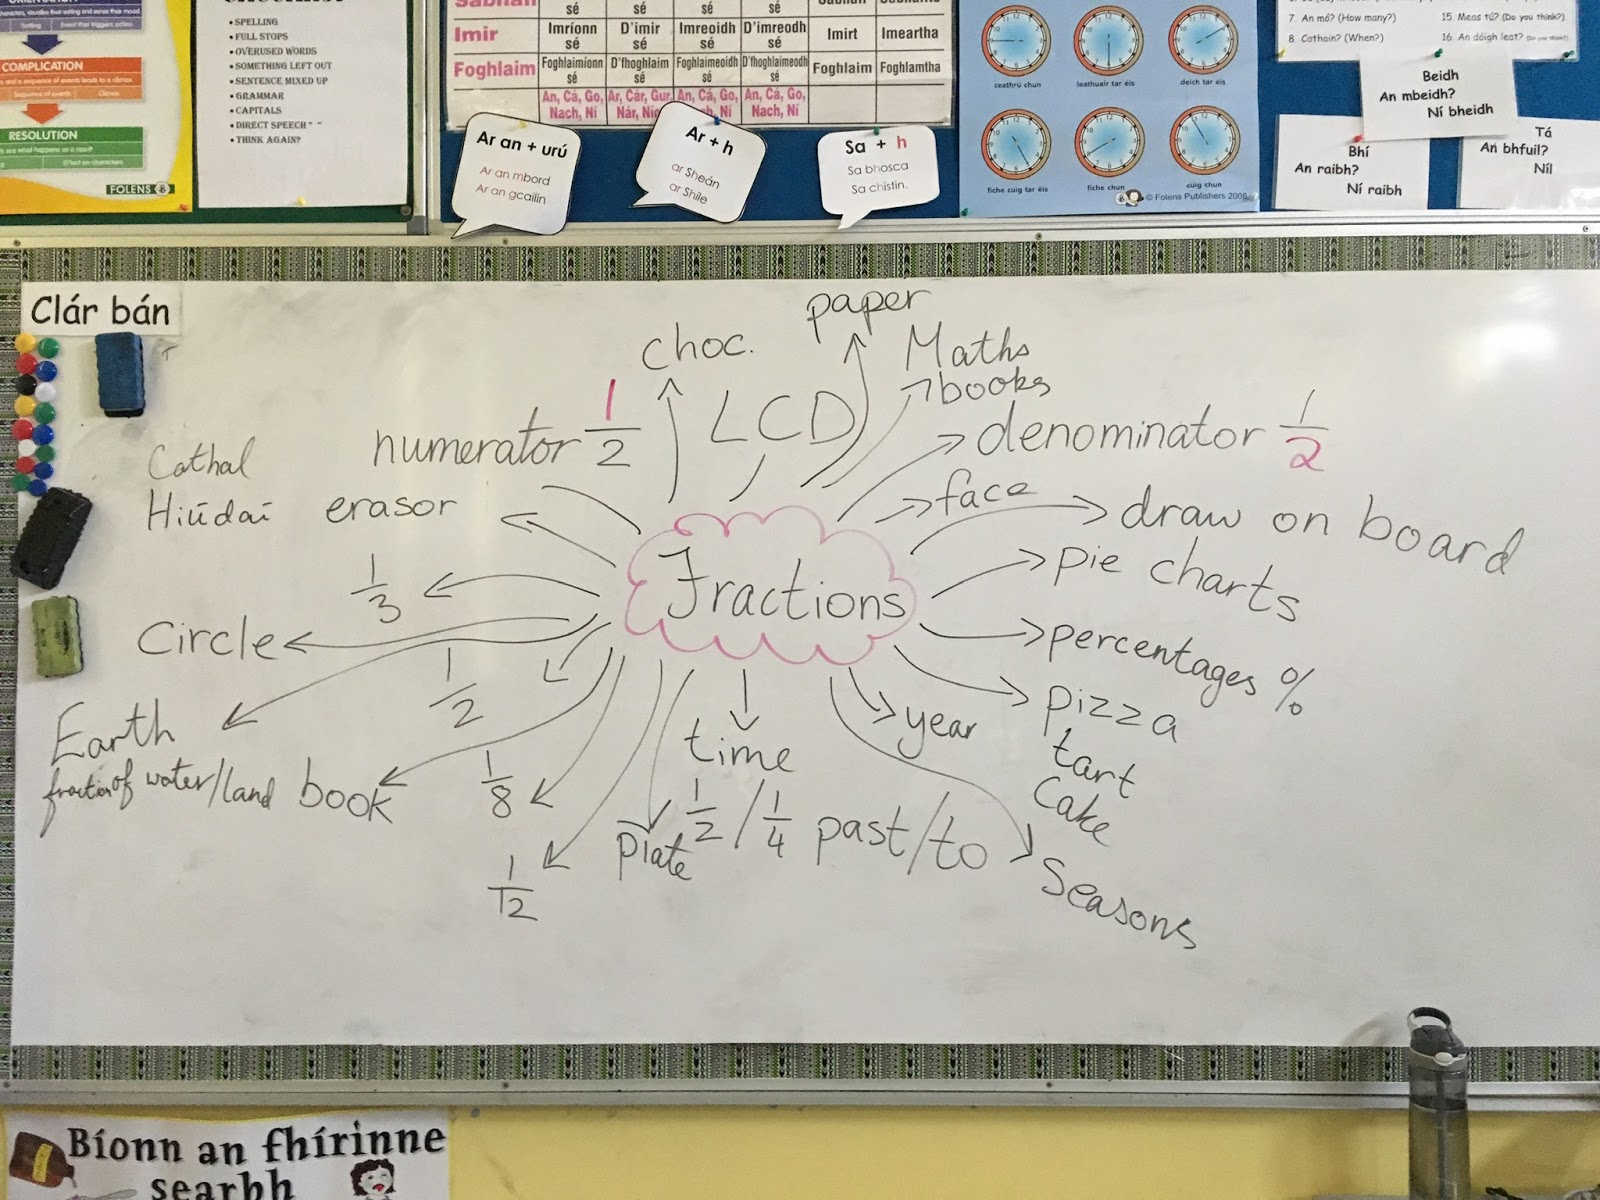 COMPLICATION
Sequence of events
Climax
RESOLUTION
FOLENS
• SPELLING
• FULL STOPS
• OVERUSED WORDS
• SOMETHING LEFT OUT
• SENTENCE MIXED UP
• GRAMMAR
• CAPITALS
• DIRECT SPEECH " "
• THINK AGAIN?
sé sé sé sé
Imir Imríonn sé D'imir sé Imreoidh sé D'imreodh sé Imirt Imeartha
Foghlaim Foghlaimíonn sé D'fhoghlaim sé Foghlaimeoidh sé D'fhoghlaimeodh sé Foghlaim Foghlamtha
An, Cá, Go, Nach, Ní Ar, Cár, Gur, Nár, An, Cá, Go, Ní An, Cá, Go, Nach, Ní
Ar an + urú
Ar an mbord
Ar an gcailín
Ar + h
ar Sheán
ar Shíle
Sa + h
Sa bhosca
Sa chistin.
ceathrú chun leathuair tar éis deich tar éis
fiche cúig tar éis fiche chun cúig chun
© Folens Publishers 2006
7. An mó? (How many?)
8. Cathain? (When?)
15 Meas tú? (Do you think?)
16. An dóigh leat? (Do you think?)
Beidh
An mbeidh?
Ní bheidh
Bhí
An raibh?
Ní raibh
Tá
An bhfuil?
Níl
Clár bán
paper
choc.
Maths
books
LCD
numerator 1/2
denominator 1/2
Cathal
Hiúdaí
erasor
face
draw on board
Fractions
pie charts
1/3
Circle
percentages %
1/2
Earth
fraction of water/land
book
pizza
tart
Cake
year
time
1/2 / 1/4 past/to
1/8
Plate
1/12
Seasons
Bíonn an fhírinne
searbh